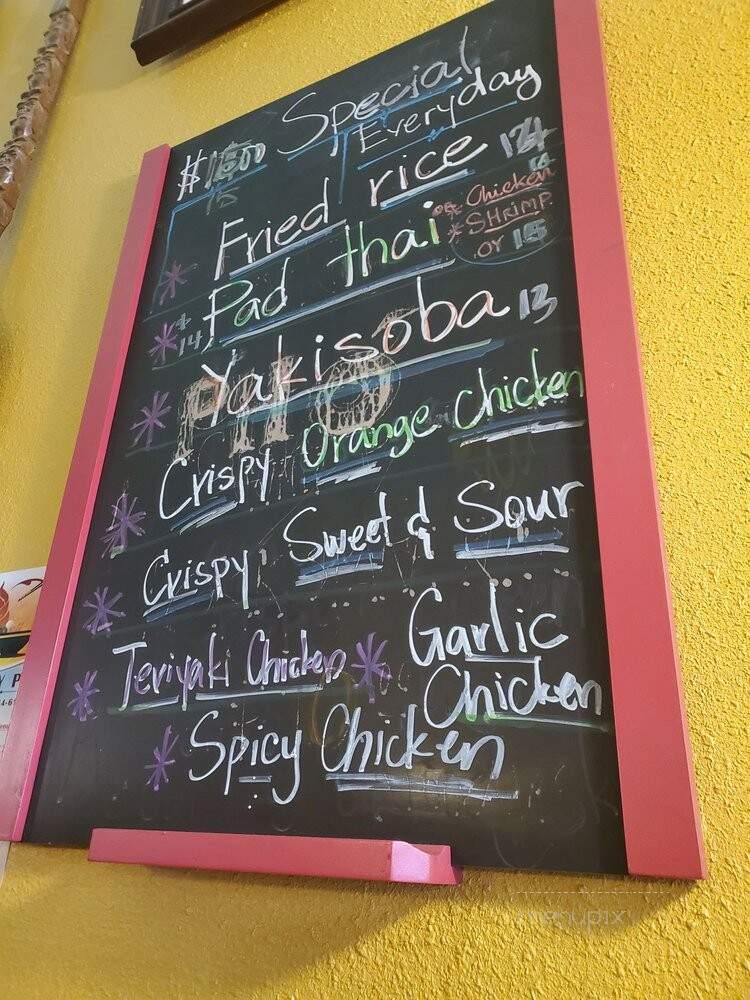 Special
Everyday
Fried rice
* Chicken
* SHRIMP
or 15
* Pad thai
14
* Yakisoba 13
PHO
* Crispy Orange chicken
* Crispy Sweet & Sour
* Teriyaki Chicken * Garlic
Chicken
* Spicy Chicken
menupix